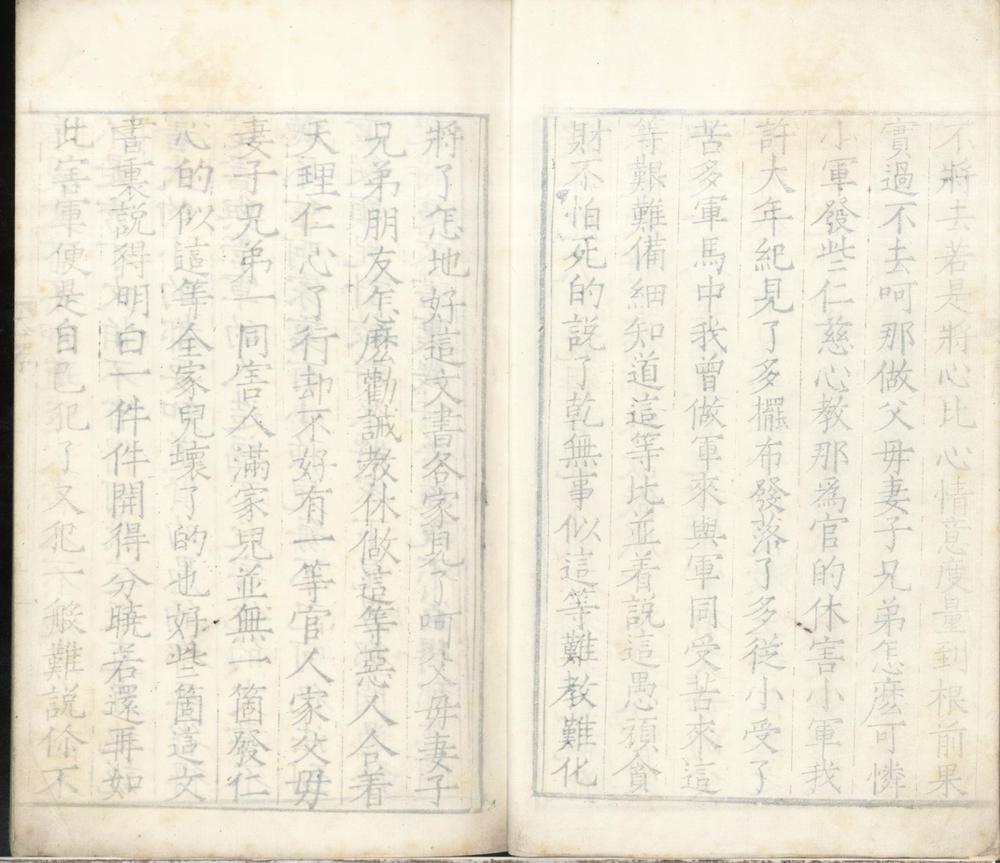 不將去若是將心比心情意度量到根前果
實過不去呵那做父母妻子兄弟怎麽可憐
小軍發些仁慈心教那爲官的休害小軍我
許大年紀見了多擺布發落了多從小受了
苦多軍馬中我曾做軍來與軍同受苦來這
等艱難備細知道這等比並着說這愚頑貪
財不怕死的說了乾無事似這等難教難化
將了怎地好這文書各家見了呵父母妻子
兄弟朋友怎麽勸誡教休做這等惡人合着
天理仁心了行却不好有一等官人家父母
妻子兄弟一同害人滿家兒並無一箇發仁
心的似這等全家兒壞了的也好些箇這文
書裏說得明白一件件開得分曉若還再如
此害軍便是自己犯了又犯一般難說你不